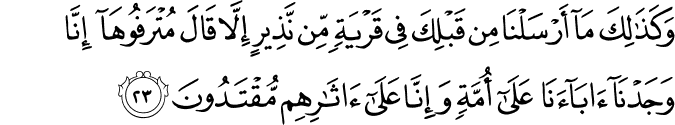 وَكَذَٰلِكَ مَآ أَرْسَلْنَا مِن قَبْلِكَ فِى قَرْيَةٍ مِّن نَّذِيرٍ إِلَّا قَالَ مُتْرَفُوهَآ إِنَّا
وَجَدْنَآ ءَابَآءَنَا عَلَىٰٓ أُمَّةٍ وَإِنَّا عَلَىٰٓ ءَاثَٰرِهِم مُّقْتَدُونَ ٢٣